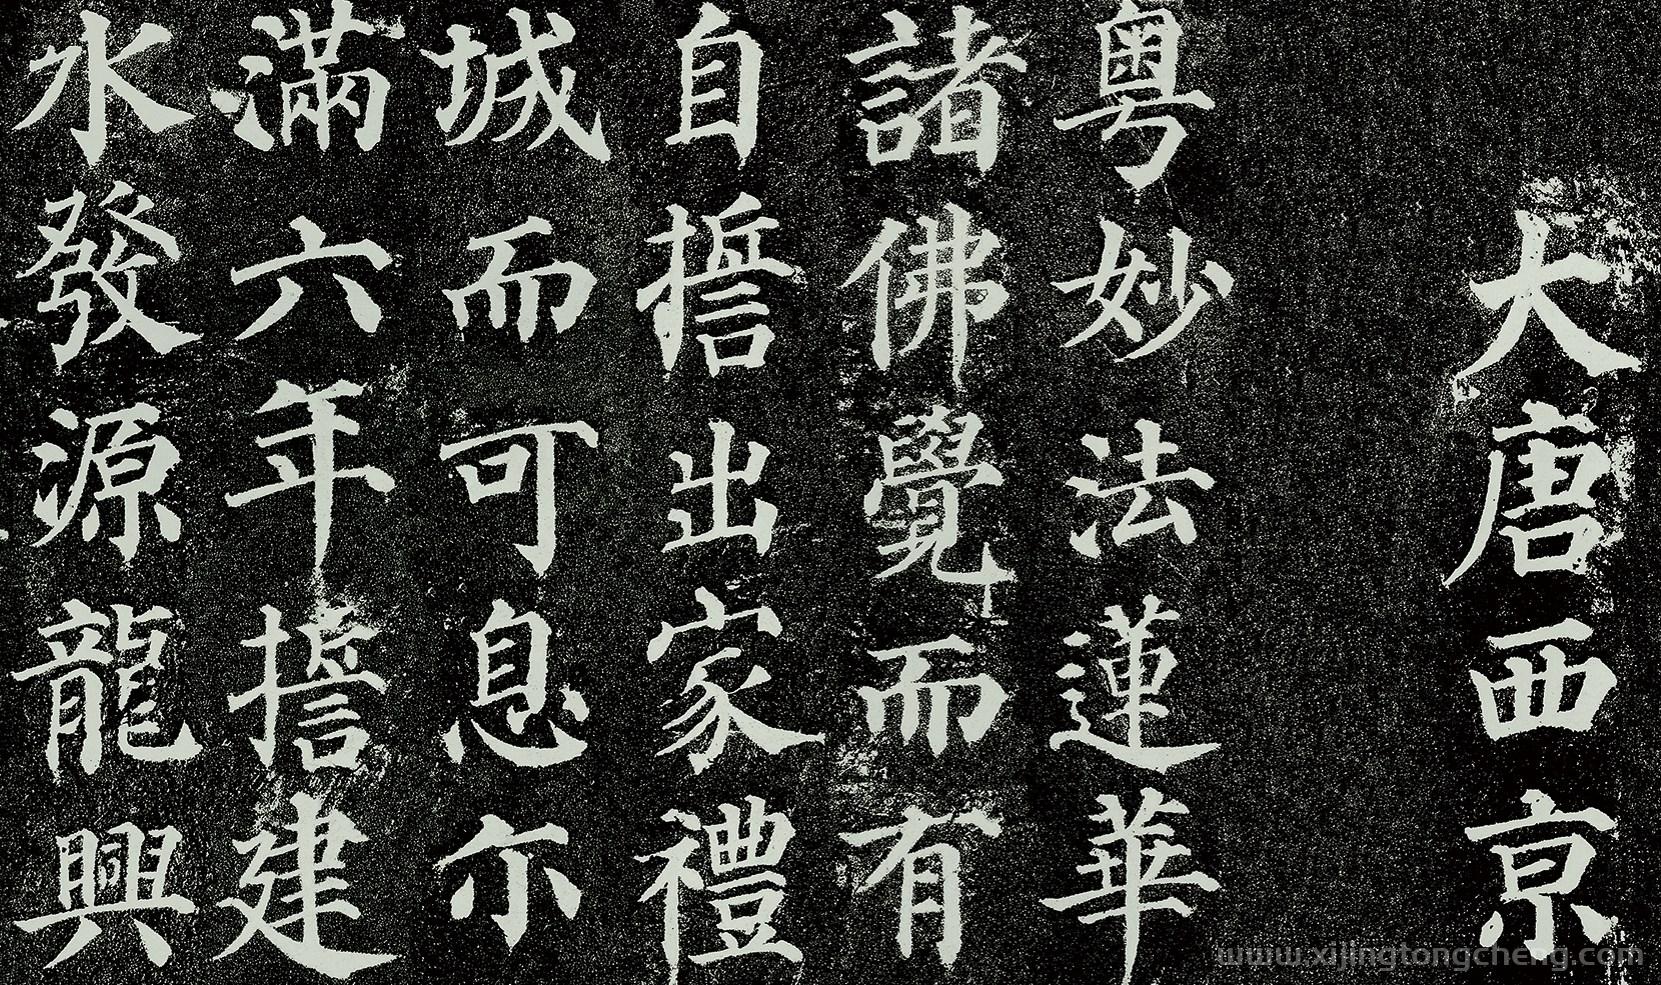 大唐西京
粤妙法蓮華
諸佛覺而有
自擔出家禮
城而可息尔
滿六年擔建
水發源龍興
www.xijingtongcheng.com